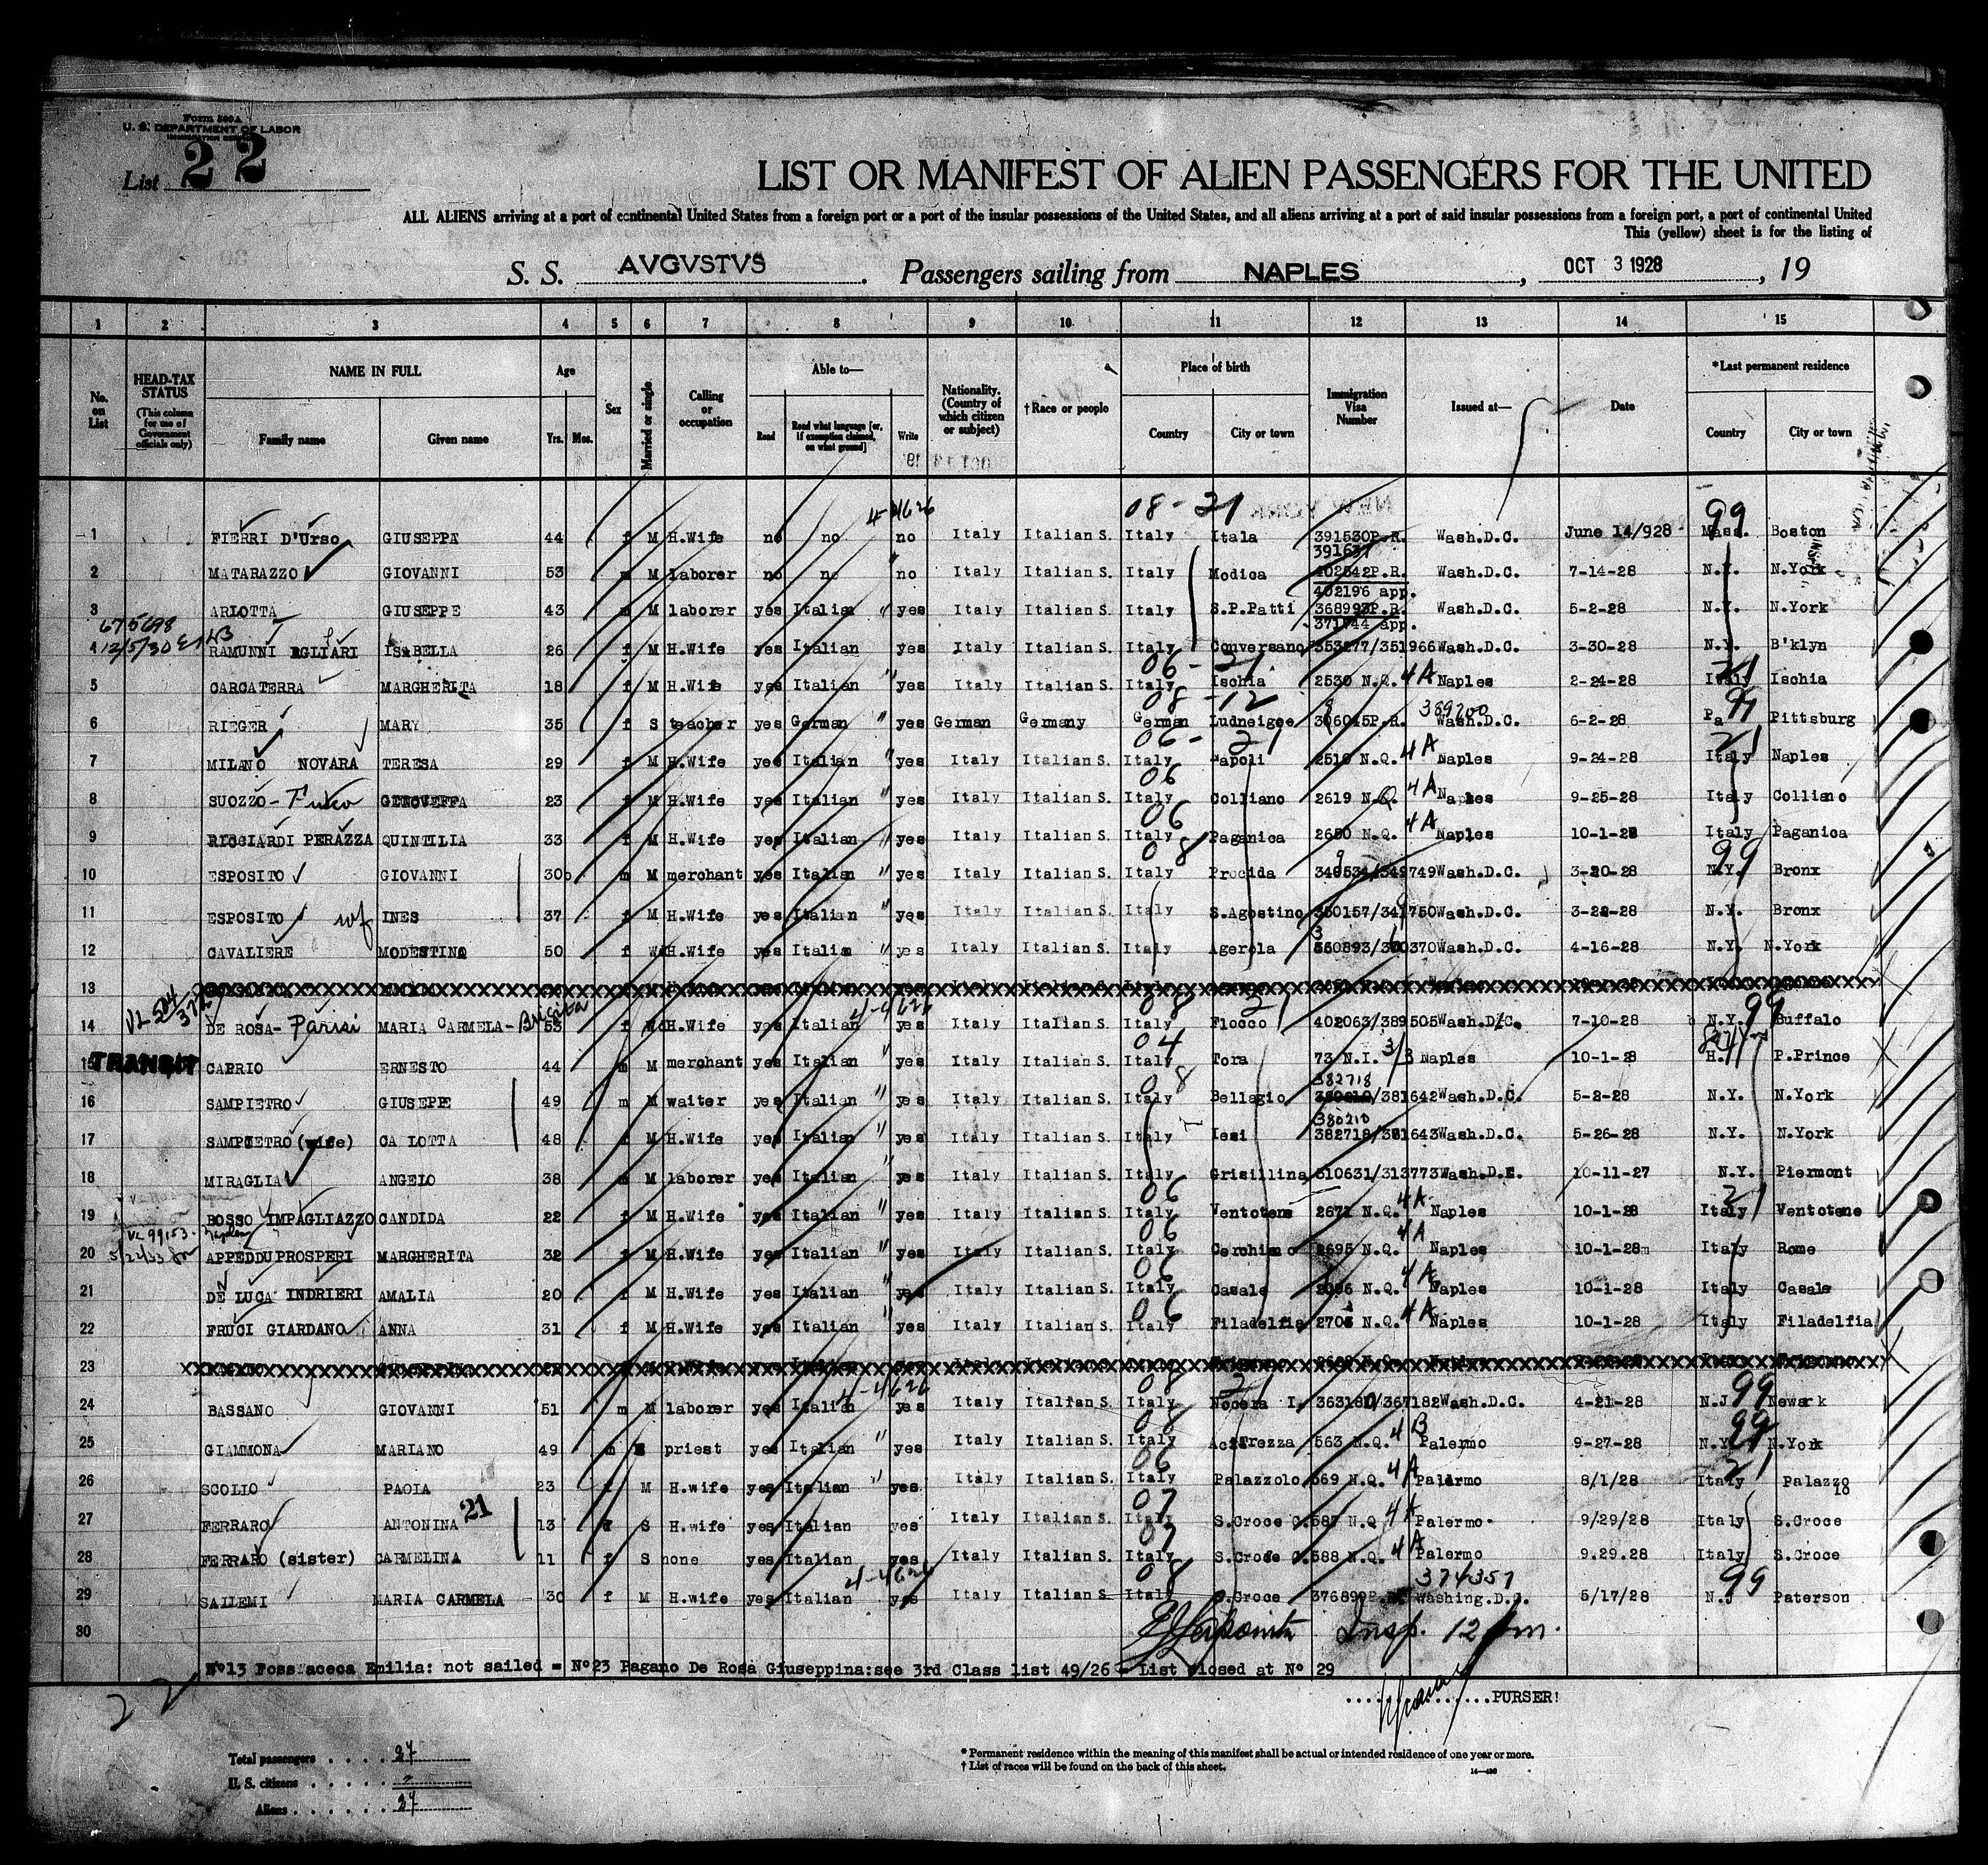 Form 500A
U. S. DEPARTMENT OF LABOR
List 22
LIST OR MANIFEST OF ALIEN PASSENGERS FOR THE UNITED
ALL ALIENS arriving at a port of continental United States from a foreign port or a port of the insular possessions of the United States, and all aliens arriving at a port of said insular possessions from a foreign port, a port of continental United
This (yellow) sheet is for the listing of
S. S. AVGVSTVS. Passengers sailing from NAPLES, OCT 3 1928, 19
1 2 3 4 5 6 7 8 9 10 11 12 13 14 15
No. on List HEAD-TAX STATUS (This column for use of Government officials only) NAME IN FULL Family name Given name Age Yrs. Mos. Sex Married or single Calling or occupation Able to— Read Read what language [or, if exemption claimed, on what ground] Write Nationality. (Country of which citizen or subject) †Race or people Place of birth Country City or town Immigration Visa Number Issued at— Date *Last permanent residence Country City or town
08-21 99
1 FIERRI D'Urso GIUSEPPA 44 f M H.Wife no no no Italy Italian S. Italy Itala 391530P.R. Wash.D.C. June 14/928 Mass. Boston
391637
2 MATARAZZO GIOVANNI 53 m M laborer no no no Italy Italian S. Italy Modica 402542P.R. Wash.D.C. 7-14-28 N.Y. N.York
402196 app.
3 ARLOTTA GIUSEPPE 43 m M laborer yes Italian " yes Italy Italian S. Italy S.P.Patti 368993P.R. Wash.D.C. 5-2-28 N.Y. N.York
371744 app.
4 RAMUNNI PGLIARI ISABELLA 26 f M H.Wife yes Italian yes Italy Italian S. Italy Conversano 353277/351966 Wash.D.C. 3-30-28 N.Y. B'klyn
06-21 21
5 CARCATERRA MARGHERITA 18 f M H.Wife yes Italian " yes Italy Italian S. Italy Ischia 2530 N.Q. 4A Naples 2-24-28 Italy Ischia
08-12 389200 99
6 RIEGER MARY 35 f S teacher yes German " yes German Germany German Ludneigee 306045P.R. Wash.D.C. 6-2-28 Pa Pittsburg
06-21 21
7 MILANO NOVARA TERESA 29 f M H.Wife yes Italian " yes Italy Italian S. Italy Napoli 2510 N.Q. 4A Naples 9-24-28 Italy Naples
06
8 SUOZZO- GENOVEFFA 23 f M H.Wife yes Italian " yes Italy Italian S. Italy Colliano 2619 N.Q. 4A Naples 9-25-28 Italy Colliano
06
9 RICCIARDI PERAZZA QUINTILIA 33 f M H.Wife yes Italian " yes Italy Italian S. Italy Paganica 2650 N.Q. 4A Naples 10-1-28 Italy Paganica
08 99
10 ESPOSITO GIOVANNI 30 m M merchant yes Italian " yes Italy Italian S. Italy Procida 348534/349749 Wash.D.C. 3-20-28 N.Y. Bronx
11 ESPOSITO wf INES 37 f M H.Wife yes Italian " yes Italy Italian S. Italy S.Agostino 350157/341750 Wash.D.C. 3-28-28 N.Y. Bronx
12 CAVALIERE MODESTINO 50 f Wd H.Wife yes Italian " yes Italy Italian S. Italy Agerola Wash.D.C. 4-16-28 N.Y. N.York
13
08 21 99
14 DE ROSA- Parisi MARIA CARMELA- Brigita 53 f Wd H.Wife yes Italian yes Italy Italian S. Italy Flocco 402063/389505 Wash.D.C. 7-10-28 N.Y. Buffalo
04
TRANSIT 15 CAPRIO ERNESTO 44 m M merchant yes Italian " yes Italy Italian S. Italy Tora 73 N.I. 3/3 Naples 10-1-28 H. P.Prince
08 382718
16 SAMPIETRO GIUSEPPE 49 m M waiter yes Italian " yes Italy Italian S. Italy Bellagio /381642 Wash.D.C. 5-2-28 N.Y. N.York
380210
17 SAMPIETRO (wife) CA LOTTA 48 f M H.Wife yes Italian " yes Italy Italian S. Italy Iesi 382718/381643 Wash.D.C. 5-26-28 N.Y. N.York
18 MIRAGLIA ANGELO 38 m M laborer yes Italian " yes Italy Italian S. Italy Grisillina 510631/313773 Wash.D.C. 10-11-27 N.Y. Piermont
06 21
19 BOSSO IMPAGLIAZZO CANDIDA 22 f M H.Wife yes Italian " yes Italy Italian S. Italy Ventotene 2671 N.Q. 4A Naples 10-1-28 Italy Ventotene
06
20 APPEDDU PROSPERI MARGHERITA 32 f M H.Wife yes Italian " yes Italy Italian S. Italy Cerchimo 2695 N.Q. 4A Naples 10-1-28 Italy Rome
06
21 DE LUCA INDRIERI AMALIA 20 f M H.Wife yes Italian " yes Italy Italian S. Italy Casale N.Q. 4A Naples 10-1-28 Italy Casale
06
22 FRUCI GIARDANO ANNA 31 f M H.Wife yes Italian " yes Italy Italian S. Italy Filadelfia 2705 N.Q. 4A Naples 10-1-28 Italy Filadelfia
23
08 21 99
24 BASSANO GIOVANNI 51 m M laborer yes Italian yes Italy Italian S. Italy Nocera I. 363180/367182 Wash.D.C. 4-21-28 N.J. Newark
08 99
25 GIAMMONA MARIANO 49 m S priest yes Italian " yes Italy Italian S. Italy Aci Trezza 563 N.Q. 4B Palermo 9-27-28 N.Y. N.York
06 21
26 SCOLLO PAOLA 23 f M H.wife yes Italian " yes Italy Italian S. Italy Palazzolo 569 N.Q. 4A Palermo 8/1/28 Italy Palazzo
lo
07
27 FERRARO ANTONINA 21 13 f S H.wife yes Italian yes Italy Italian S. Italy S.Croce C. 587 N.Q 4A Palermo 9/29/28 Italy S.Croce
07
28 FERRARO (sister) CARMELINA 11 f S none yes Italian yes Italy Italian S. Italy S.Croce C. 588 N.Q. 4A Palermo 9.29.28 Italy S.Croce
08 374357 99
29 SALLEMI MARIA CARMELA 30 f M H.wife yes Italian yes Italy Italian S. Italy S.Croce 376899P.R. Washing.D.C. 5/17/28 N.J Paterson
30 Insp. 12 pm.
Nº13 Fossaceca Emilia: not sailed = Nº23 Pagano De Rosa Giuseppina:see 3rd Class list 49/26 - List closed at Nº 29
22
PURSER!
Total passengers 27
U. S. citizens -
Aliens 27
* Permanent residence within the meaning of this manifest shall be actual or intended residence of one year or more.
† List of races will be found on the back of this sheet.